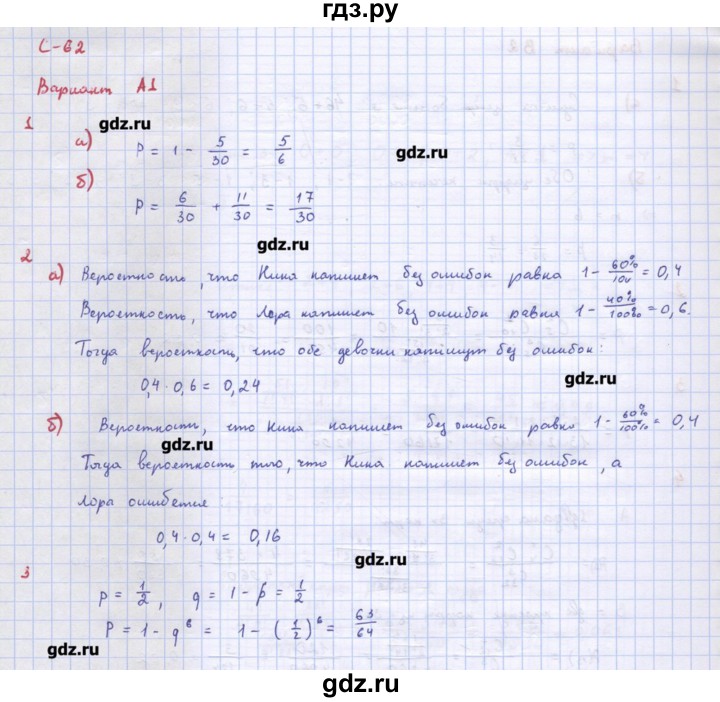 гдз.ру
С-62
Вариант А1
1
gdz.ru
а) P = 1 - 5/30 = 5/6
gdz.ru
б)
P = 6/30 + 11/30 = 17/30
gdz.ru
2
а) Вероетность, что Нина напишет без ошибок равна 1 - 60%/100 = 0,4
Вероетность, что Лора напишет без ошибок равна 1 - 40%/100% = 0,6.
Тогда вероетность, что обе девочки напишут без ошибок:
0,4 · 0,6 = 0,24
gdz.ru
б) Вероетность, что Нина напишет без ошибок равна 1 - 60%/100% = 0,4
gdz.ru
Тогда вероетность того, что Нина напишет без ошибок, а
Лора ошибется
0,4 · 0,4 = 0,16
gdz.ru
3
P = 1/2, q = 1 - p = 1/2
P = 1 - q⁶ = 1 - (1/2)⁶ = 63/64
gdz.ru
gdz.ru